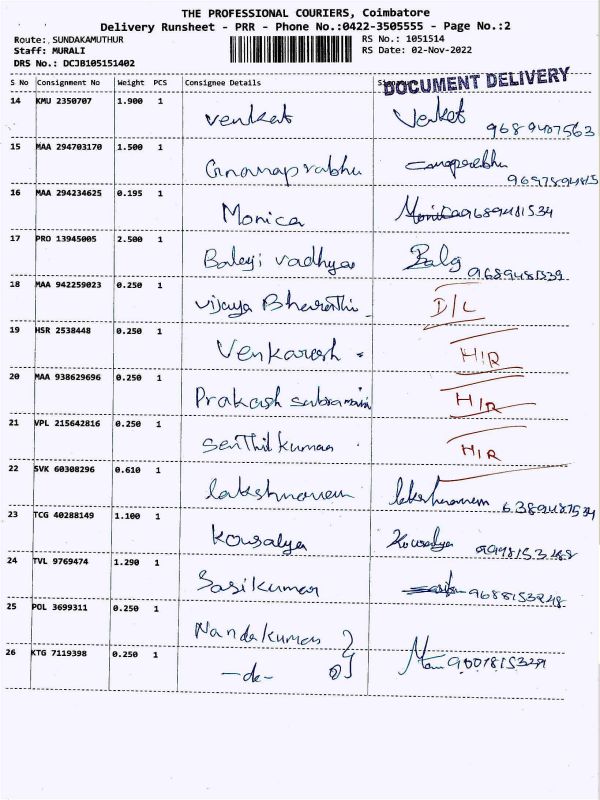 THE PROFESSIONAL COURIERS, Coimbatore
Delivery Runsheet - PRR - Phone No.:0422-3505555 - Page No.:2
Route: SUNDAKAMUTHUR RS No.: 1051514
Staff: MURALI RS Date: 02-Nov-2022
DRS No.: DCJB105151402
S No Consignment No Weight PCS Consignee Details
DOCUMENT DELIVERY
14 KMU 2350707 1.900 1
Venkat Venkat 9689407563
15 MAA 294703170 1.500 1
Gnanaprabhu
16 MAA 294234625 0.195 1
Monica Monica 9689481534
17 PRO 13945005 2.500 1
Balaji vadhyar 9689481539
18 MAA 942259023 0.250 1
Vijaya Bharathi D/L
19 HSR 2538448 0.250 1
Venkatesh H/R
20 MAA 938629696 0.250 1
Prakash subramani H/R
21 VPL 215642816 0.250 1
Senthil kumar H/R
22 SVK 60308296 0.610 1
lakshmanan lakshmanan 6389487534
23 TCG 40288149 1.100 1
Kowsalya Kowsalya
24 TVL 9769474 1.290 1
Sasikumar 9688153248
25 POL 3699311 0.250 1
Nandakumar
26 KTG 7119398 0.250 1
-do-